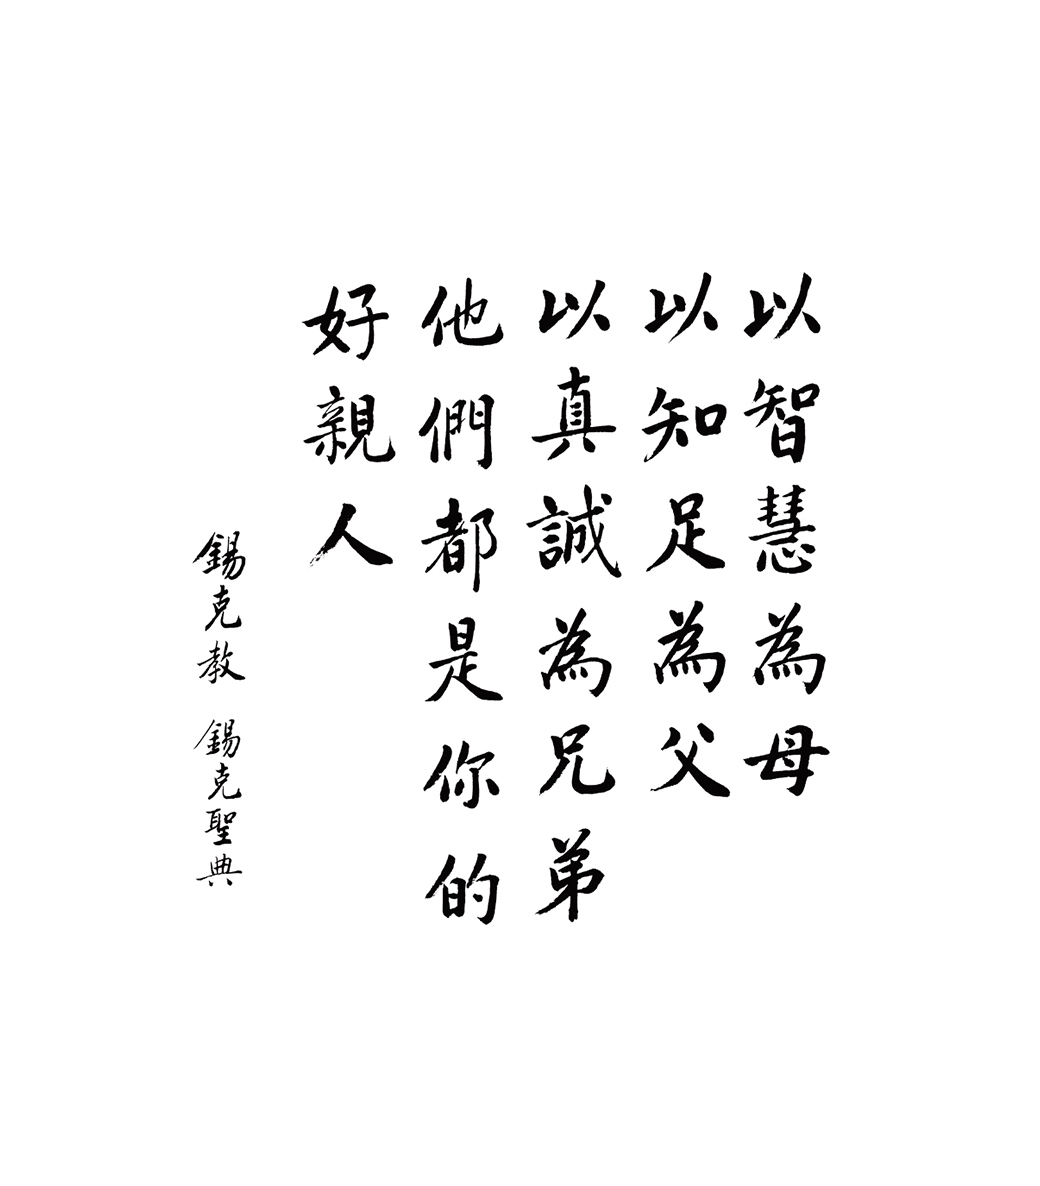 以智慧為母
以知足為父
以真誠為兄弟
他們都是你的
好親人
錫克教 錫克聖典